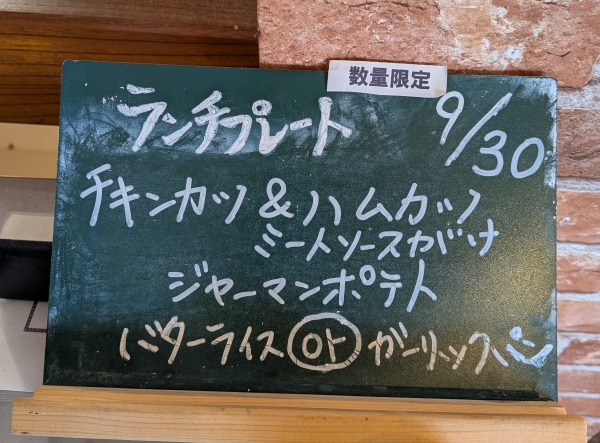 数量限定
ランチプレート 9/30
チキンカツ&ハムカツ
ミートソースがけ
ジャーマンポテト
バターライス or ガーリックパン